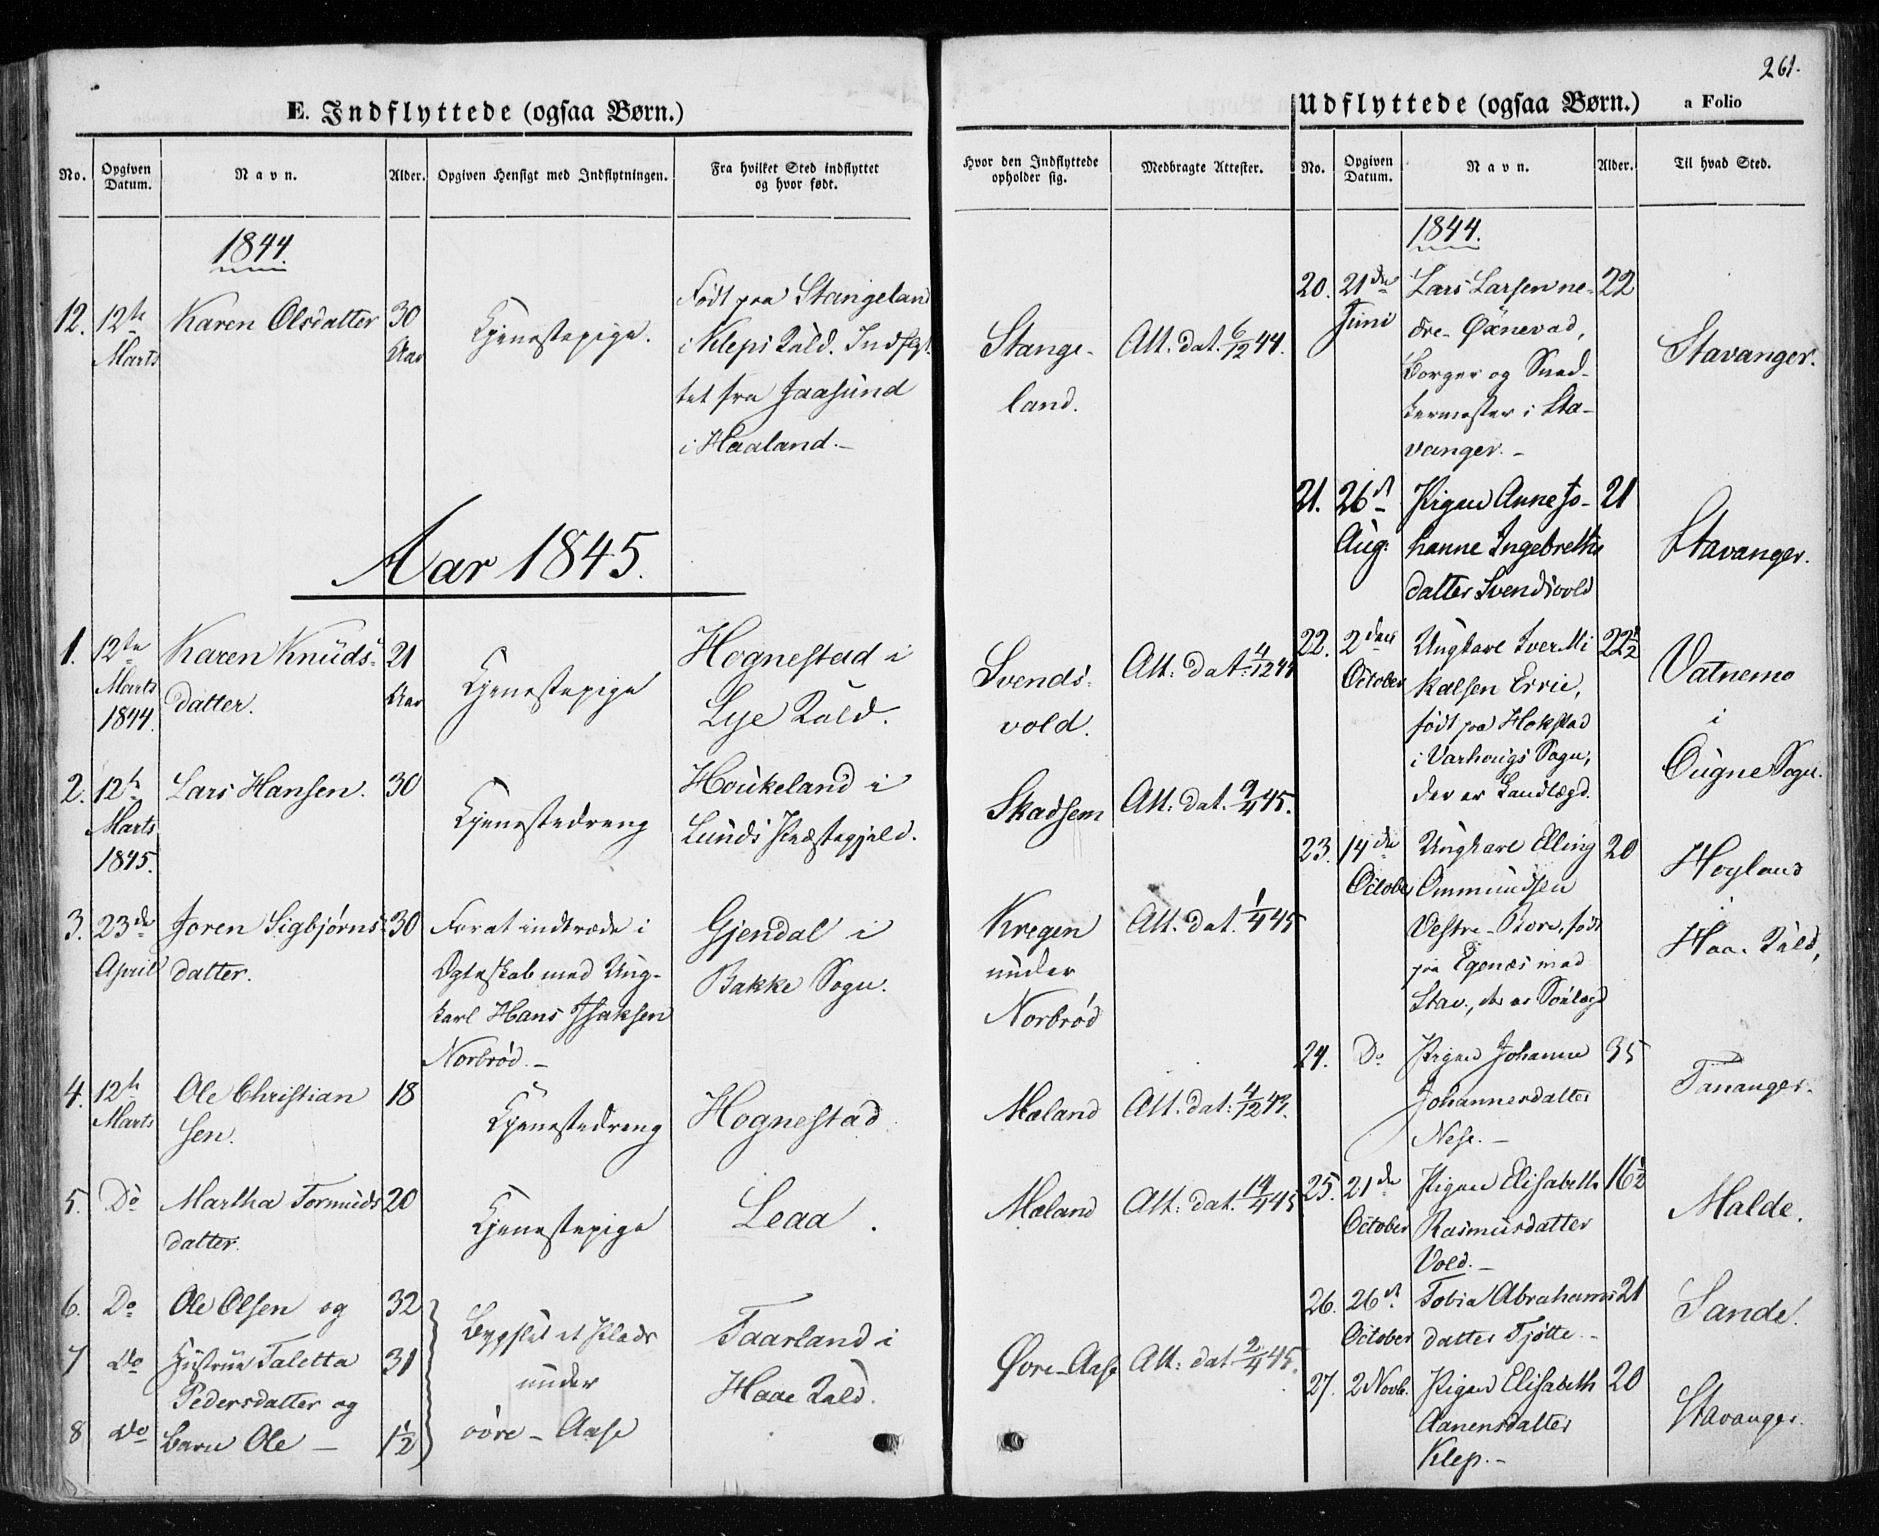 261.
E. Indflyttede (ogsaa Børn.)
No.
Opgiven Datum.
Navn.
Alder.
Opgiven Hensigt med Indflytningen.
Fra hvilket Sted indflyttet
og hvor født.
Hvor den Indflyttede
opholder sig.
Medbragte Attester.
1844.
12.
12te
Marts
Karen Olsdatter
30
Aar
Tjenestepige.
Født paa Stangeland
i Kleps Præld. Indflyt-
tet fra Jaasund
i Haaland.-
Stange-
land.
Att. dat. 6/12 44.
Aar 1845.
1.
12te
Marts
1844.
Karen Knuds-
datter.
21
Aar
Tjenestepige
Hognestad i
Lye Præld.
Svends-
vold.
Att: dat: 4/12 44
2.
12te
Marts
1845.
Lars Hansen.
30
Tjenestedreng
Houkeland i
Lunds Præstegjeld.
Skadsem
Att: dat. 9/4 45.
3.
23de
April
Joren Sigbjørns-
datter.
30
For at indtræde i
Ægteskab med Ung-
karl Hans Isaksen
Norbrød.-
Gjendal i
Bakke Sogn.
Kregen
under
Norbrød
Att. dat. 1/4 45
4.
12te
Marts
Ole Christian
sen.
18
Tjenestedreng
Hognestad
Mæland
Att: dat: 4/12 43.
5.
Do
Martha Tormods
datter.
20
Tjenestepige
Leaa.
Mæland
Att: dat. 14/4 45
6.
Do
Ole Olsen og
32
7
Do
Hustrue Taletta
Pedersdatter og
31
8
Do
Barn Ole -
1½
Bygslet et Plads
under
øvre-Aase
Taarland i
Haae Præld.
Øvre-Aase
Att: dat. 2/4 45.
Udflyttede (ogsaa Børn.)
a Folio
No.
Opgiven Datum.
Navn.
Alder.
Til hvad Sted.
1844.
20.
21de
Juni
Lars Larsen ne-
dre-Øxnevad,
Borger og Sned-
kermester i Sta-
vanger.-
22
Stavanger.
21.
26de
Aug:
Pigen Anne Jo-
hanne Ingebreths
datter Svendsvold
21
Stavanger.
22.
2den
October
Ungkarl Iver Mi
kalsen Errie,
født paa
i Varhougs Sogn,
der er Landlægd.
22½
Vatnemo
i
Ougne Sogn.
23.
14de
October
Ungkarl Elling
Ommundsen
Vestre-Bore, født
paa Egenæs ved
Stav., der er Søelægd
20
Hoyland
i
Haa-Præld,
24.
Do
Pigen Johanne
Johannesdatter
Nese.-
35
Tananger.
25.
21de
October
Pigen Elisabeth
Rasmusdatter
Vold.-
16½
Malde.
26.
26de
October
Tobia Abrahams
datter Tjøtte.-
21
Sande.
27.
2 Novb.
Pigen Elisabeth
Aanensdatter
Klep.-
20
Stavanger.